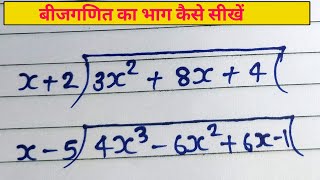 बीजगणित का भाग कैसे सीखें
x+2)3x² + 8x + 4(
x-5)4x³ - 6x² + 6x - 1(